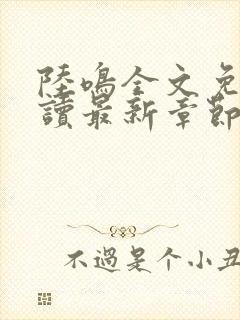 陸鳴全文免
讀最新章節
不過是个小丑